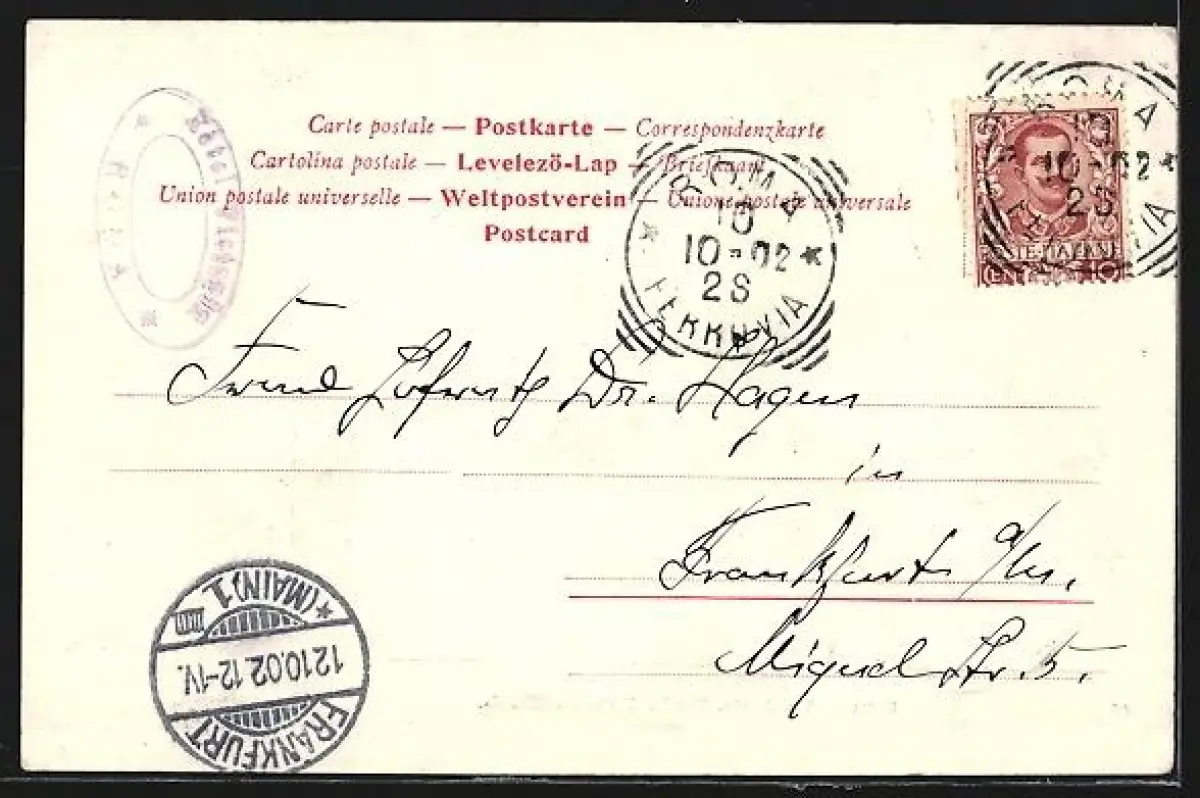 Carte postale — Postkarte — Correspondenzkarte
Cartolina postale — Levelező-Lap — Briefkaart
Union postale universelle — Weltpostverein — Unione postale universale
Postcard
ROMA
10
10-02
2S
FERROVIA
ROMA
10
10-02
2S
FERROVIA
POSTE-ITALIANE
CENT. 10
ROMA
Dr. Hagen
in
Frankfurt a/M.
Miquel Str. 5.
FRANKFURT
12.10.02.12-1V.
* (MAIN) 1